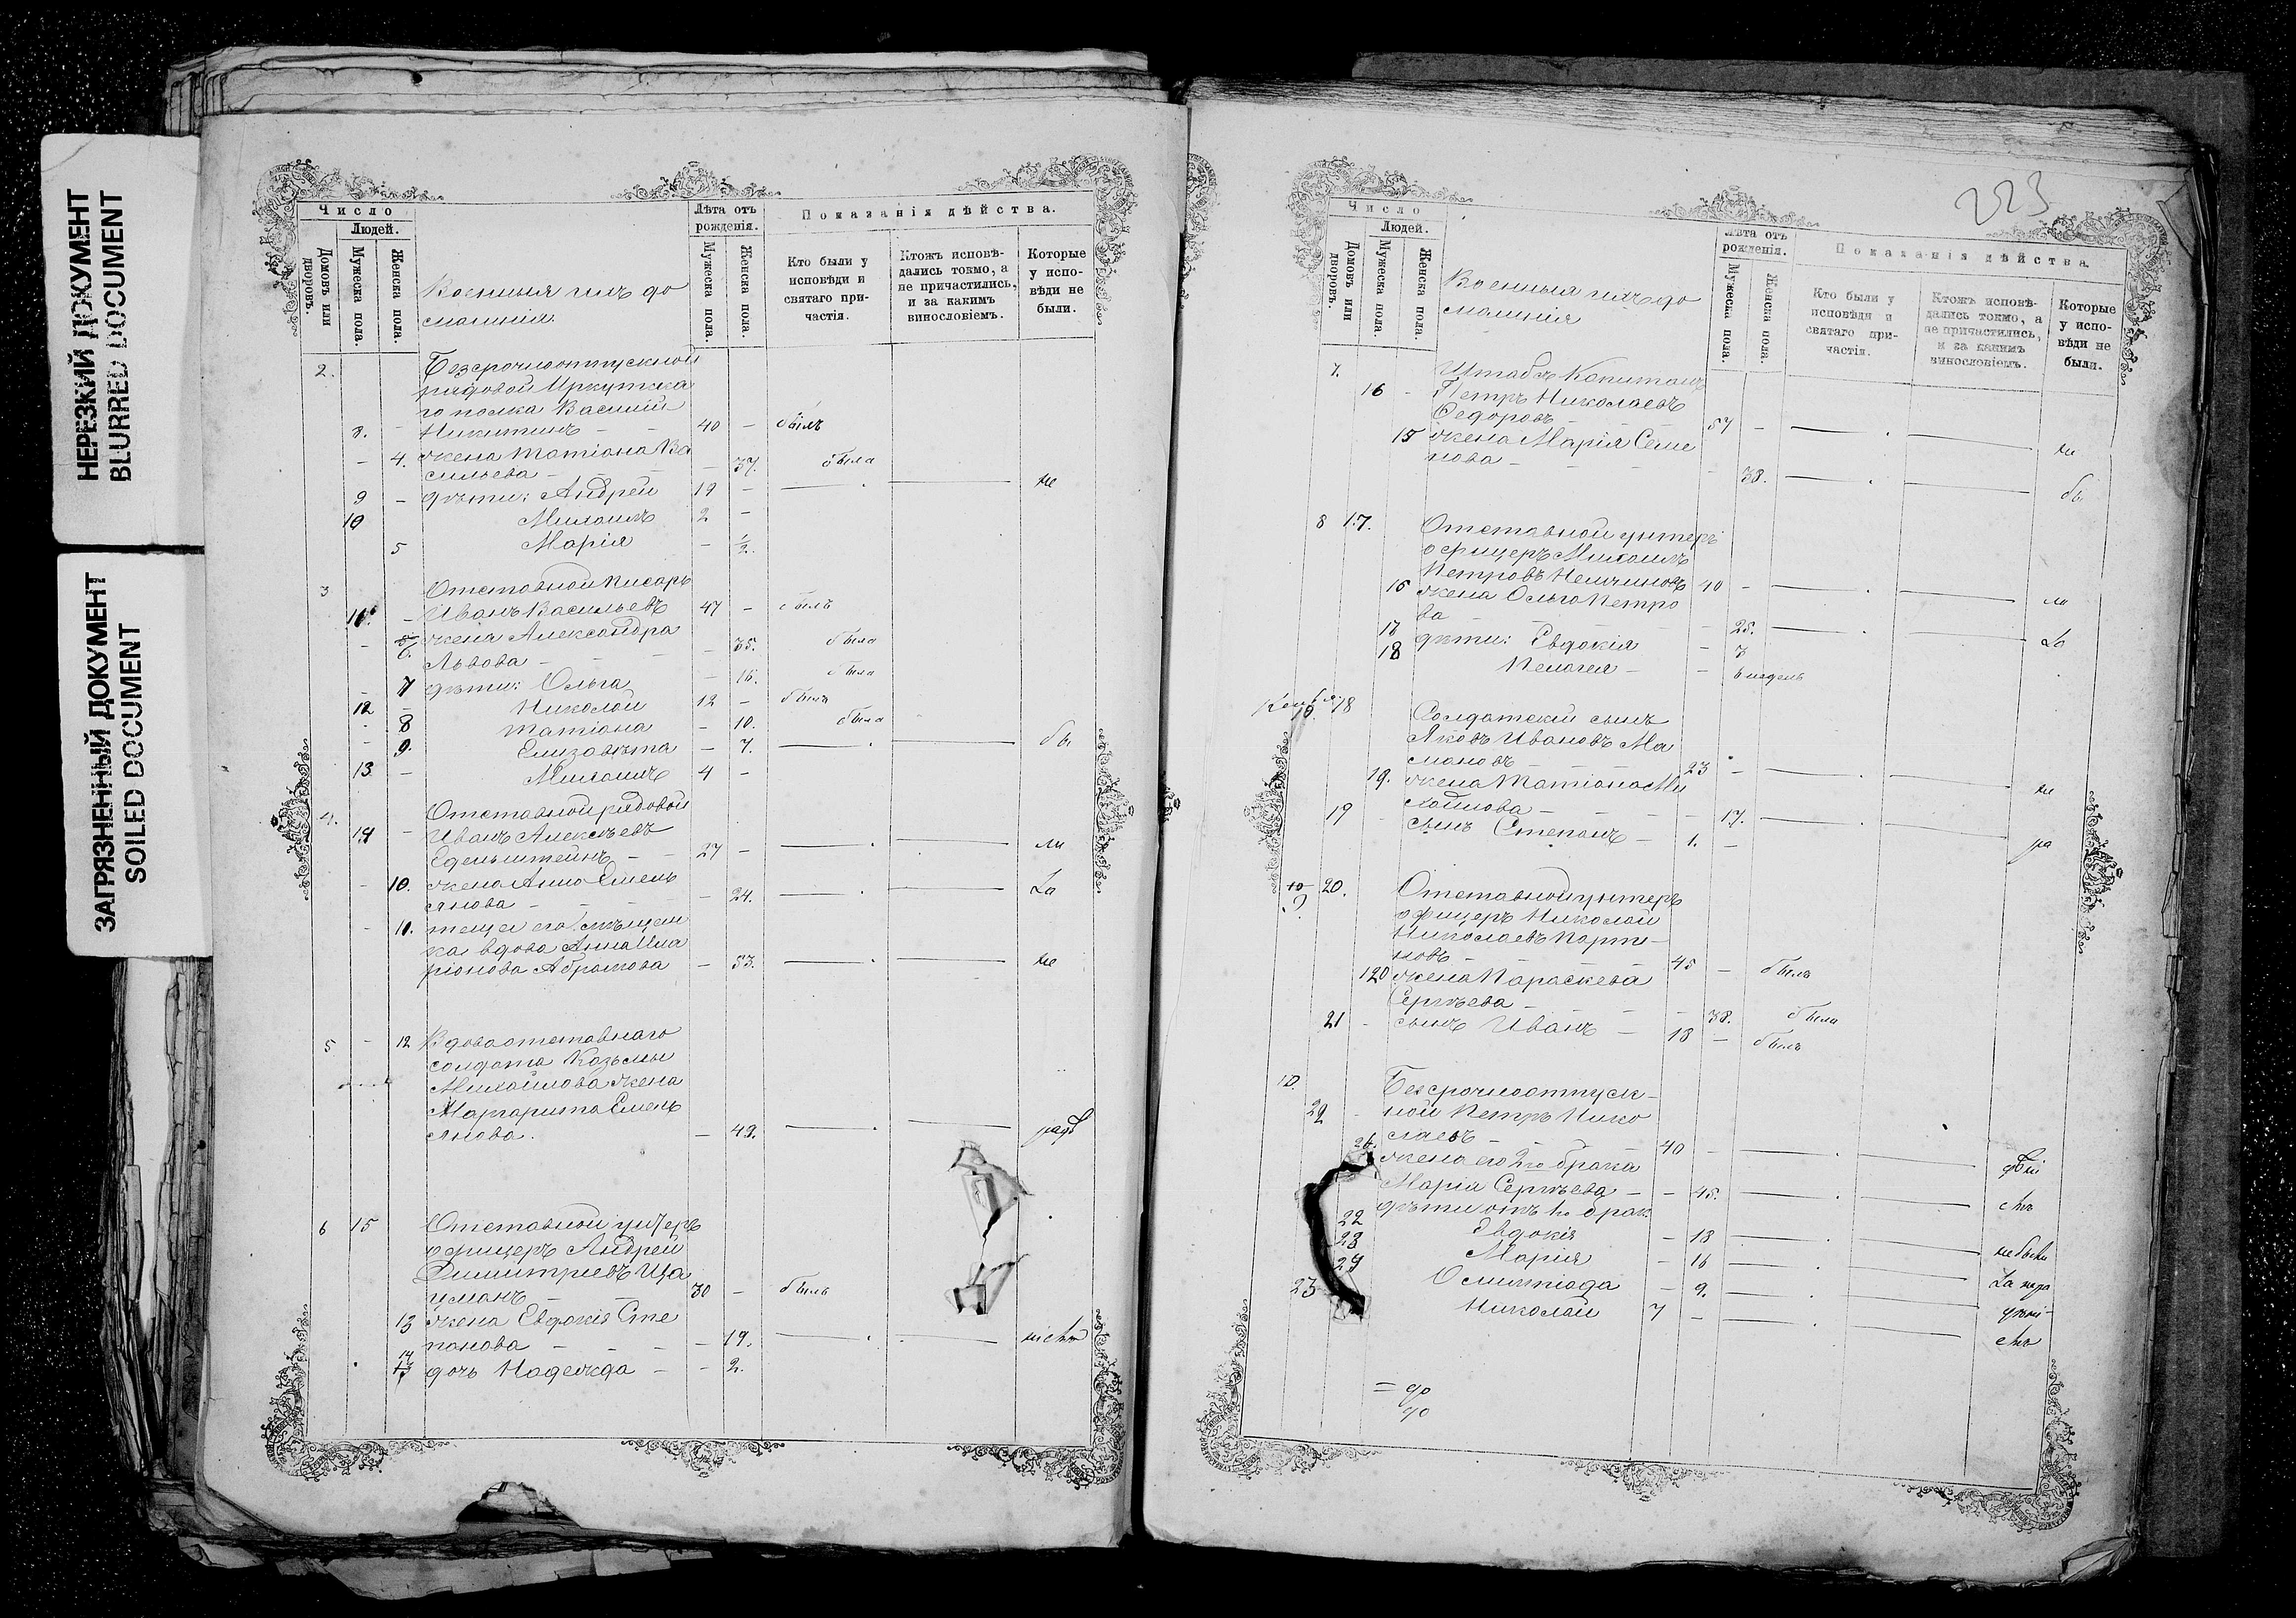 НЕРЕЗКИЙ ДОКУМЕНТ
BLURRED DOCUMENT
ЗАГРЯЗНЕННЫЙ ДОКУМЕНТ
SOILED DOCUMENT
Число
Людей.
Домовъ или дворовъ.
Мужеска пола.
Женска пола.
Военныя и ихъ до
машнія.
Лѣта отъ рожденія.
Мужеска пола.
Женска пола.
Показанія дѣйства.
Кто были у исповѣди и святаго при-частія.
Ктожъ исповѣ-дались токмо, а не причастились, и за какимъ винословіемъ.
Которые у испо-вѣди не были.
2. Безсрочноотпускной
рядовой Иркутска
го полка Василій
8. - Никитинъ - - 40 - былъ
- 4. жена Татіана Ва
сильева - - 37. была
9 - дѣти: Андрей 19 - не
10 Михаилъ 2 -
5 Марія - 1/2.
3 Отставной писарь
11. - Иванъ Васильевъ 47 - былъ
- 6. жена Александра
Львова - - 35. была
- 7 дѣти: Ольга - 16. была
12 - Николай 12 - былъ
- 8 Татіана - 10. была
- 9. Елизавета - 7. бы
13 - Михаилъ 4 -
4. Отставной рядовой
14 - Иванъ Алексѣевъ
Едельштейнъ - - 27 - ли
- 10. жена Анна Емель
янова - - 24. За
- 11. теща его мѣщан
ка вдова Анна Ила
ріонова Абрамова - 53. не
5 - 12 Вдова отставнаго
солдата Козьмы
Михайлова жена
Маргарита Емель
янова. - 49. радѣ
6 15 Отставной унтеръ
офицеръ Андрей
Димитріевъ Ща
цманъ - 30 - былъ
13 жена Евдокія Сте
панова - - - 19. ніемъ
14 дочь Надежда - - 2.
223
Число
Людей.
Домовъ или дворовъ.
Мужеска пола.
Женска пола.
Военныя и ихъ до
машнія
Лѣта отъ рожденія.
Мужеска пола.
Женска пола.
Показанія дѣйства
Кто были у исповѣди и святаго при-частія.
Ктожъ исповѣ-дались токмо, а не причастились, и за какимъ винословіемъ.
Которые у испо-вѣди не были.
7. Штабсъ Капитанъ
16 - Петръ Николаевъ
Федоровъ - 57 - не
15 жена Марія Семе
нова - - 38. бы
8 17. Отставной унтеръ
офицеръ Михаилъ
Петровъ Немчиновъ 40 - ли
16 жена Ольга Петро
ва - - 25. За
17 дѣти: Евдокія - 3
18 Пелагея - - 6 недѣль
18 Солдатскій сынъ
Яковъ Ивановъ Ма
мановъ - 23 - не
19. жена Татіана Ми
хайлова - - 17. ра
19 сынъ Степанъ - 1. -
9 20. Отставной унтеръ
офицеръ Николай
Николаевъ Марты-
новъ - 45 - былъ
20 жена Параскева
Сергѣева - - 38. была
21 - сынъ Иванъ - 18 - былъ
10. Безсрочноотпуск-
22 - ной Петръ Нико
лаевъ - 40 -
21. жена его 2го брака
Марія Сергѣева - - 45.
дѣти отъ 1го брак
22 Евдокія - 18 не были
23 Марія - 16 За нера
24 Олимпіада - 9.
23 Николай 7 -
= 90
90